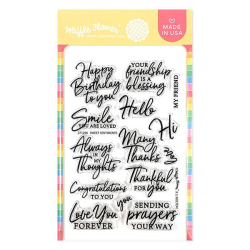 Waffle Flower
MADE IN USA
Happy
Birthday
to you
YOUR
friendship
IS A
blessing
MY FRIEND
Hello
Smile
YOU ARE LOVED
SWEET SENTIMENTS
Hi
Always
IN MY
Thoughts
Many
Thanks
Thankful
FOR YOU
Congratulations
TO YOU
you
Love You
FOREVER
SENDING
prayers
YOUR WAY